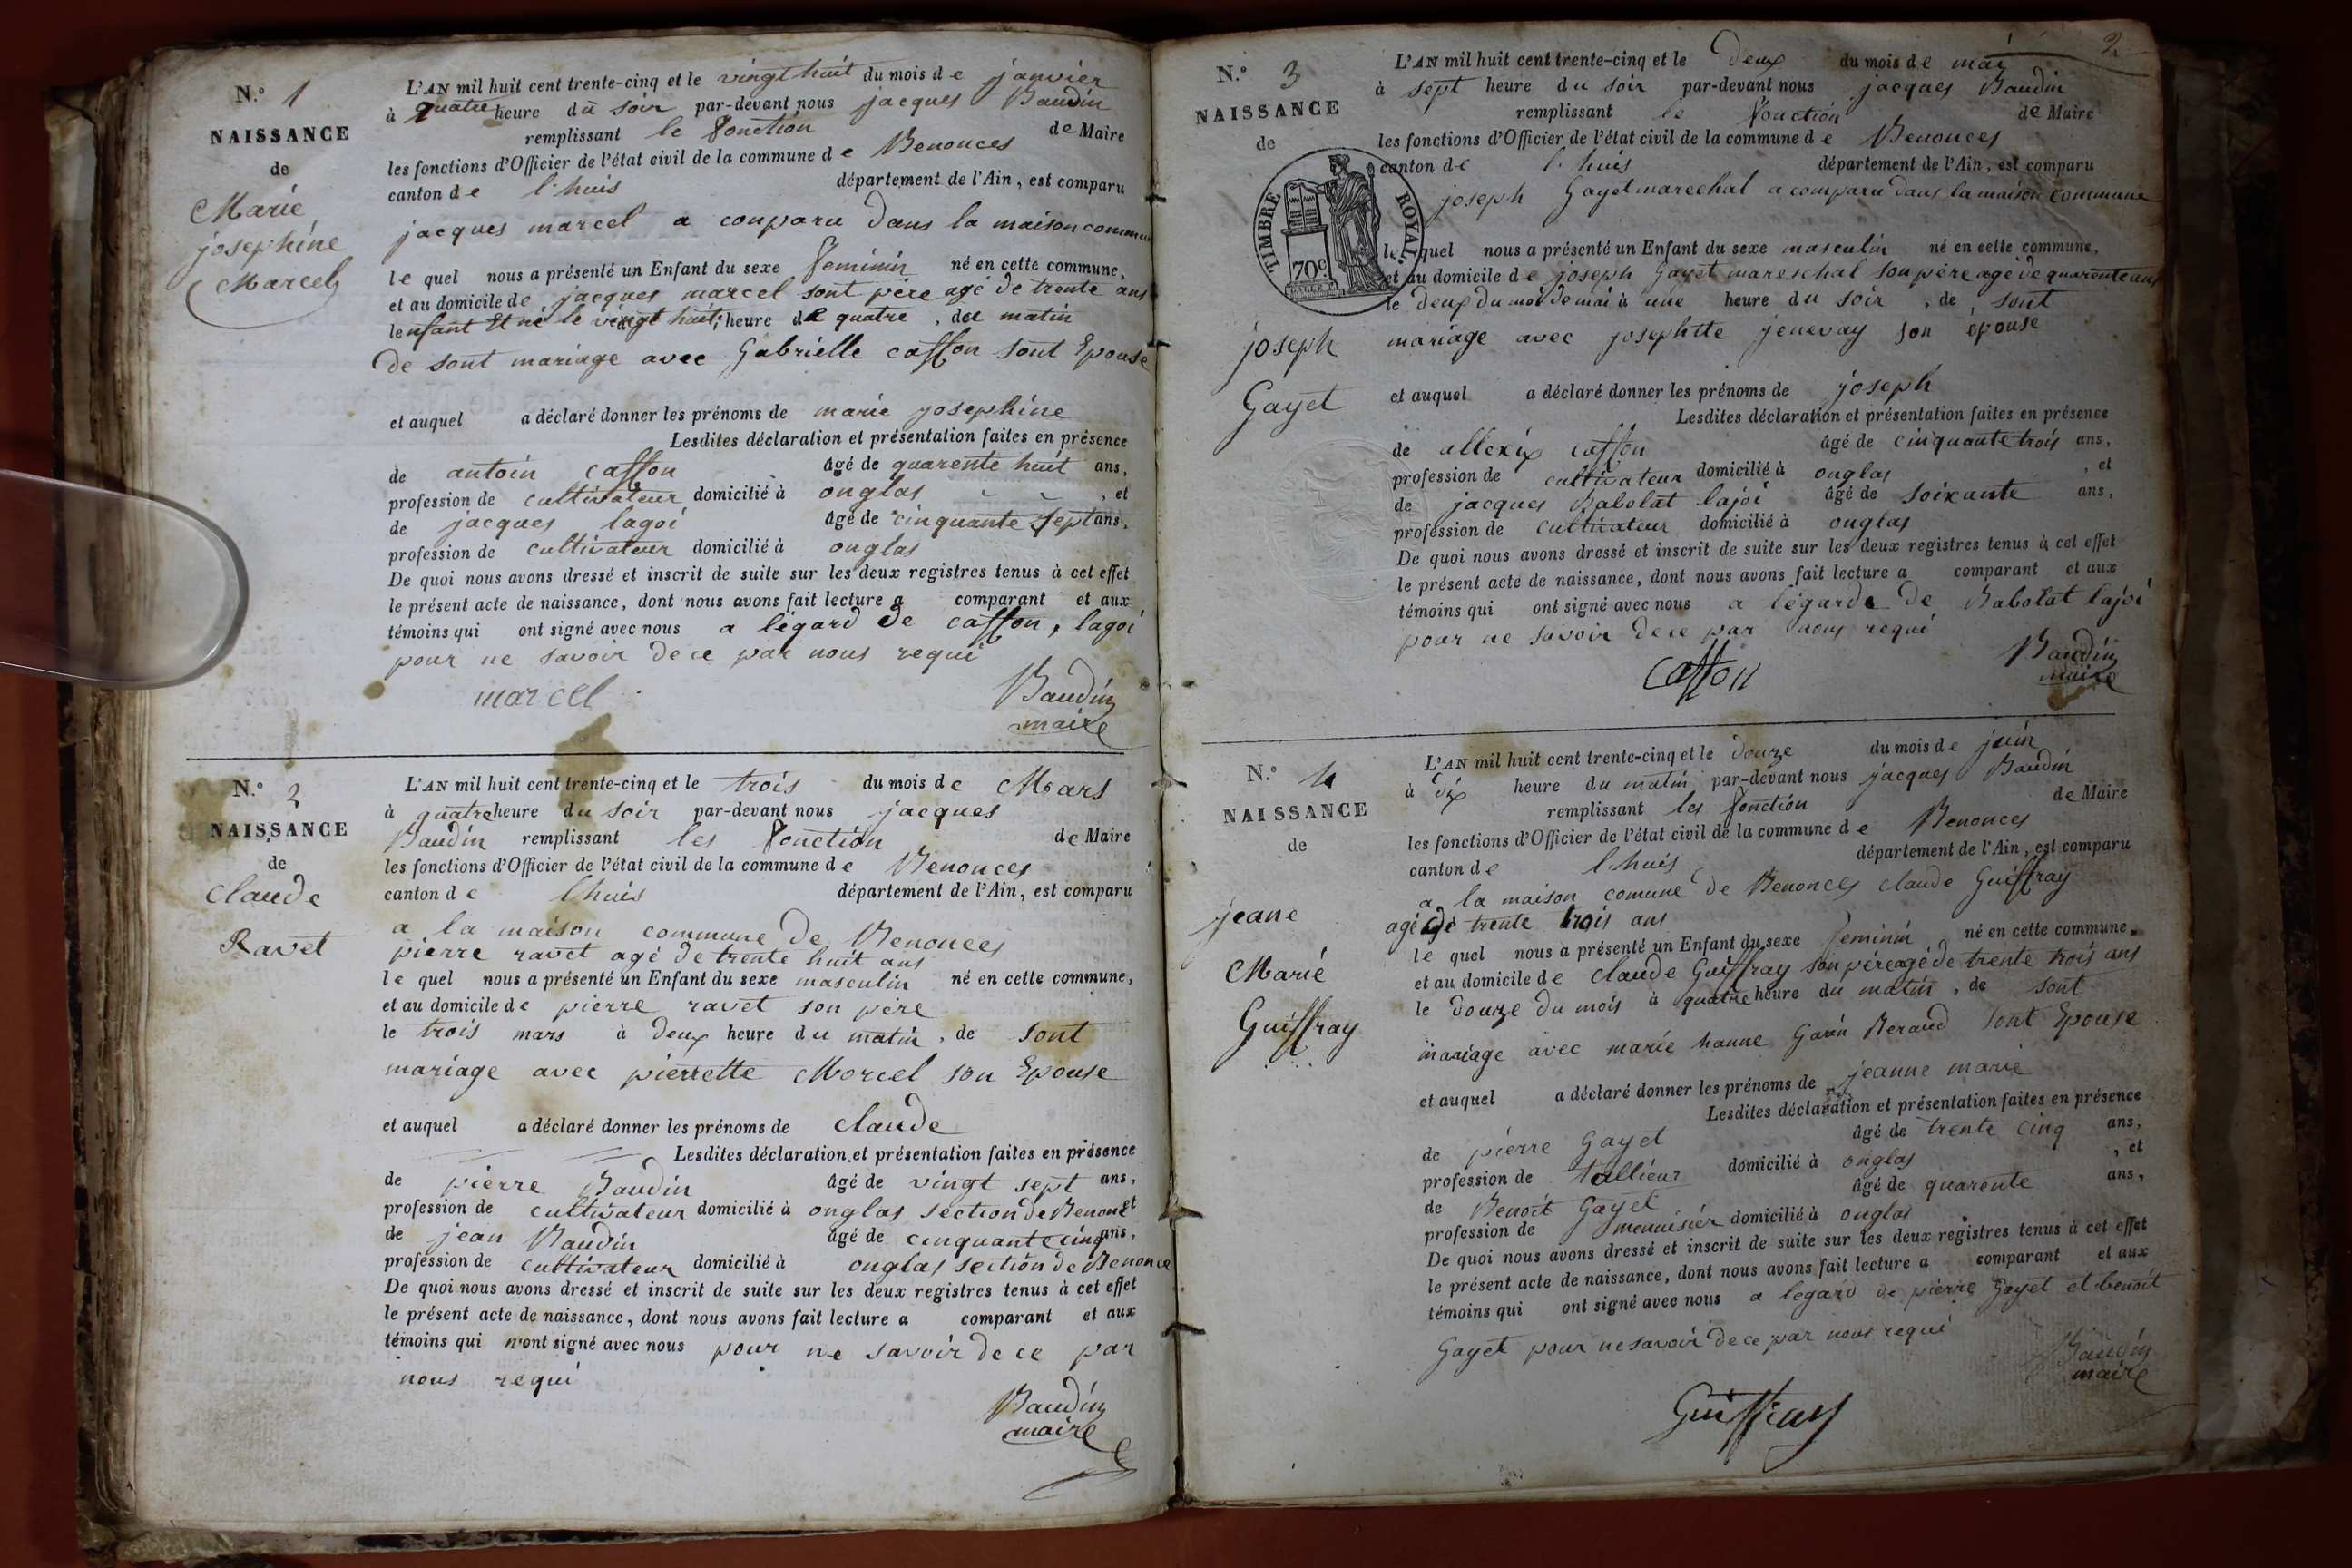 N.° 1
NAISSANCE
de
Marie
josephine
Marcel
L'AN mil huit cent trente-cinq et le vingt huit du mois de janvier
à quatre heure du soir par-devant nous jacques Baudin
remplissant le fonction de Maire
les fonctions d'Officier de l'état civil de la commune de Benonces
canton de l'huis département de l'Ain, est comparu
jacques marcel a conparu dans la maison commune
le quel nous a présenté un Enfant du sexe feminin né en cette commune,
et au domicile de jacques marcel sont père agé de trente ans
lenfant Et né le vingt huit heure de quatre, du matin
de sont mariage avec Gabrielle casson sont Epouse
et auquel a déclaré donner les prénoms de marie josephine
Lesdites déclaration et présentation faites en présence
de antoin casson âgé de quarente huit ans,
profession de cultivateur domicilié à onglas , et
de jacques lagoi âgé de cinquante sept ans,
profession de cultivateur domicilié à onglas
De quoi nous avons dressé et inscrit de suite sur les deux registres tenus à cet effet
le présent acte de naissance, dont nous avons fait lecture a comparant et aux
témoins qui ont signé avec nous a légard de casson, lagoi
pour ne savoir de ce par nous requi
marcel Baudin
maire
N.° 2
NAISSANCE
de
claude
Ravet
L'AN mil huit cent trente-cinq et le trois du mois de Mars
à quatre heure du soir par-devant nous jacques
Baudin remplissant les fonction de Maire
les fonctions d'Officier de l'état civil de la commune de Benonces
canton de lhuis département de l'Ain, est comparu
a la maison commune de Benonces
pierre ravet agé de trente huit ans
le quel nous a présenté un Enfant du sexe masculin né en cette commune,
et au domicile de pierre ravet son père
le trois mars à deux heure du matin, de sont
mariage avec pierrette Morcel son Epouse
et auquel a déclaré donner les prénoms de claude
Lesdites déclaration et présentation faites en présence
de pierre Baudin âgé de vingt sept ans,
profession de cultivateur domicilié à onglas section de Benonc et
de jean Baudin âgé de cinquante cinq ans,
profession de cultivateur domicilié à onglas section de Benonce
De quoi nous avons dressé et inscrit de suite sur les deux registres tenus à cet effet
le présent acte de naissance, dont nous avons fait lecture a comparant et aux
témoins qui n'ont signé avec nous pour ne savoir de ce par
nous requi
Baudin
maire
2
N.° 3
NAISSANCE
de
TIMBRE ROYAL
70c
joseph
Gayet
L'AN mil huit cent trente-cinq et le deux du mois de mai
à sept heure du soir par-devant nous jacques Baudin
remplissant le fonction de Maire
les fonctions d'Officier de l'état civil de la commune de Benonces
canton de l'huis département de l'Ain, est comparu
joseph Gayet marechal a comparu dans la maison commune
le quel nous a présenté un Enfant du sexe masculin né en cette commune,
et au domicile de joseph Gayet mareschal son père agé de quarente ans
le deux du moi de mai à une heure du soir, de sont
mariage avec josephtte jenevay son épouse
et auquel a déclaré donner les prénoms de joseph
Lesdites déclaration et présentation faites en présence
de allexix casson âgé de cinquante trois ans,
profession de cultivateur domicilié à onglas , et
de jacques Babolat lajoi âgé de soixante ans,
profession de cultivateur domicilié à onglas
De quoi nous avons dressé et inscrit de suite sur les deux registres tenus à cet effet
le présent acte de naissance, dont nous avons fait lecture a comparant et aux
témoins qui ont signé avec nous a légarde de Babolat lajoi
pour ne savoir de ce par nous requi
casson Baudin
maire
N.° 4
NAISSANCE
de
jeane
Marie
Guiffray
L'AN mil huit cent trente-cinq et le douze du mois de juin
à dix heure du matin par-devant nous jacques Baudin
remplissant les fonction de Maire
les fonctions d'Officier de l'état civil de la commune de Benonces
canton de l'huis département de l'Ain, est comparu
a la maison comune de Benonces claude Guiffray
agé de trente trois ans
le quel nous a présenté un Enfant du sexe feminin né en cette commune,
et au domicile de claude Guiffray son père agé de trente trois ans
le douze du mois à quatre heure du matin, de sont
mariage avec marie hanne Garin Beraud sont Epouse
et auquel a déclaré donner les prénoms de jeanne marie
Lesdites déclaration et présentation faites en présence
de pierre Gayet âgé de trente cinq ans,
profession de tallieur domicilié à onglas , et
de Benoit Gayet âgé de quarente ans,
profession de menuisier domicilié à onglas
De quoi nous avons dressé et inscrit de suite sur les deux registres tenus à cet effet
le présent acte de naissance, dont nous avons fait lecture a comparant et aux
témoins qui ont signé avec nous a legard de pierre Gayet et benoit
Gayet pour ne savoir de ce par nous requi
Baudin
maire
Guiffray